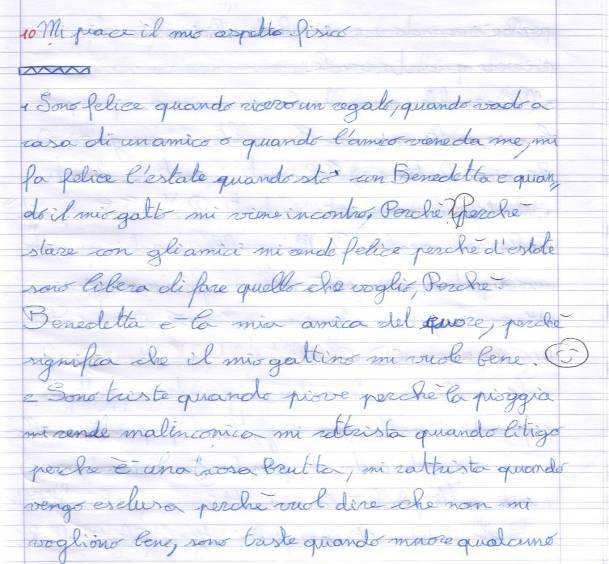 10 Mi piace il mio aspetto fisico
1 Sono felice quando ricevo un regalo, quando vado a
casa di un amico o quando l'amico viene da me, mi
fa felice l'estate quando sto con Benedetta e quan
do il mio gatto mi viene incontro. Perché? Perché
stare con gli amici mi rende felice perché d'estate
sono libera di fare quello che voglio, Perché
Benedetta è la mia amica del quore, perché
significa che il mio gattino mi vuole bene.
2 Sono triste quando piove perché la pioggia
mi rende malinconica mi rattrista quando litigo
perche è una cosa brutta, mi rattrista quando
vengo esclusa perché vuol dire che non mi
vogliono bene, sono triste quando muore qualcuno